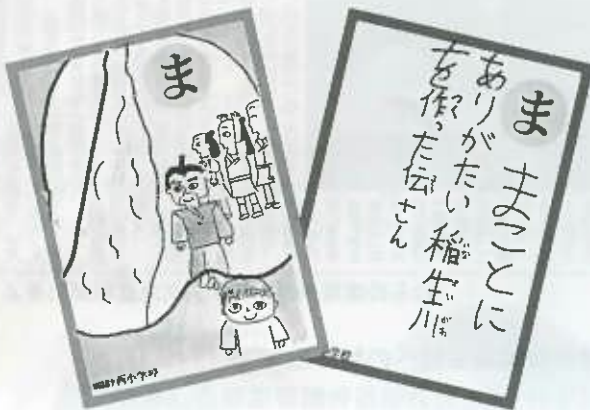 ま
ま
まことに
ありがたい稲生川
を作った伝さん